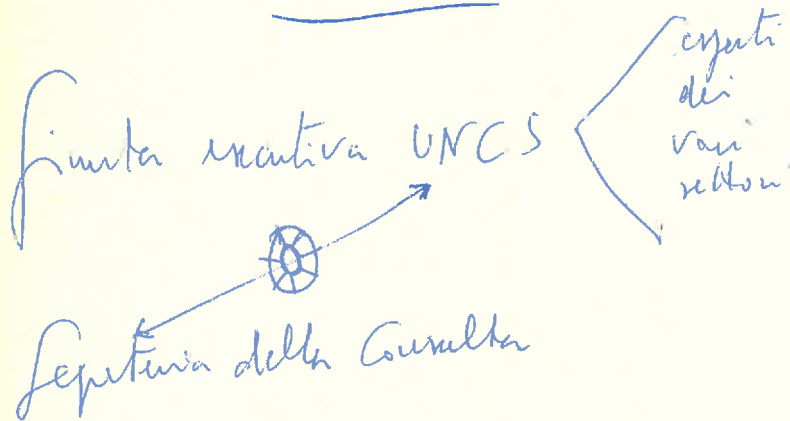 Giunta esecutiva UNCS
esperti
dei
vari
settori
Segreteria della Consulta